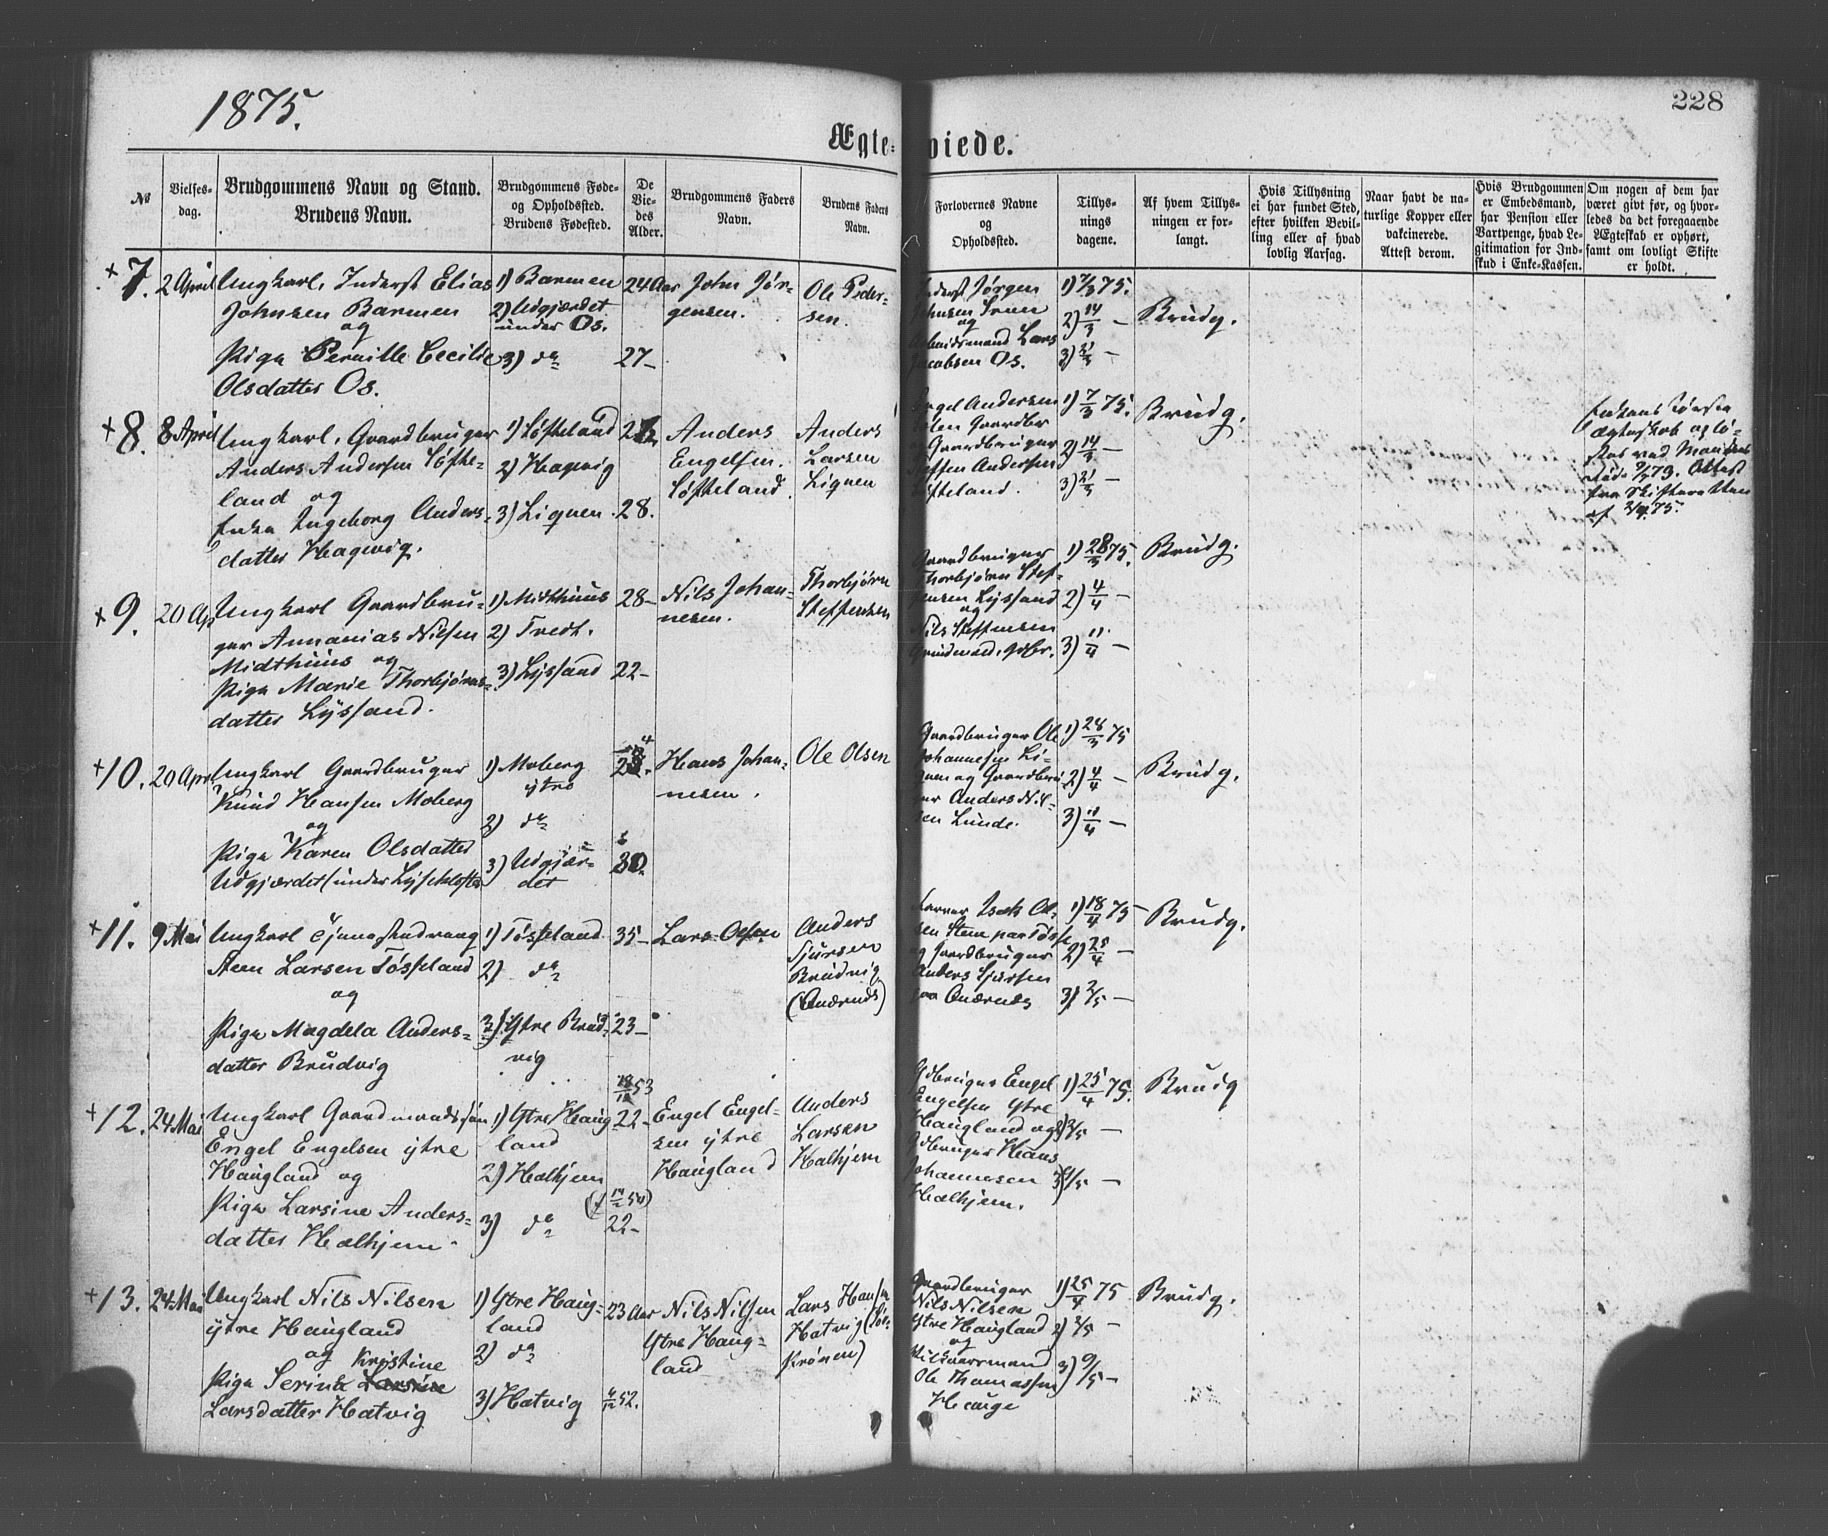 1875.
228
Ægte=viede.
№
Vielses-
dag.
Brudgommens Navn og Stand.
Brudens Navn.
Brudgommens Føde-
og Opholdssted.
Brudens Fødested.
De
Vie-
des
Alder.
Brudgommens Faders
Navn.
Brudens Faders
Navn.
Forlovernes Navne
og
Opholdssted.
Tillys-
nings
dagene.
Af hvem Tillys-
ningen er for-
langt.
Hvis Tillysning
ei har fundet Sted,
efter hvilken Bevil-
ling eller af hvad
lovlig Aarsag.
Naar havt de na-
turlige Kopper eller
vakcinerede.
Attest derom.
Hvis Brudgommen
er Embedsmand,
har Pension eller
Vartpenge, hvad Le-
gitimation for Ind-
skud i Enke-Kassen.
Om nogen af dem har
været givt før, og hvor-
ledes da det foregaaende
Ægteskab er ophørt,
samt om lovligt Skifte
er holdt.
+ 7.
2 April
Ungkarl, Inderst Elias
Johnsen Barmen
og
Pige Pernille Cecilie
Olsdatter Os.
1) Barmen
2) Udgjærdet
under Os.
3) do
24 Aar
27 –
John Jør-
gensen.
Ole Peder-
sen.
Inderst Jørgen
Johnsen
og
Arbeidsmand Lars
Jacobsen Os.
1) 7/3 75.
2) 14/3 –
3) 21/3 –
Brudg.
+ 8.
8 April
Ungkarl, Gaardbruger
Anders Andersen Søfte-
land og
Enke Ingeborg Anders-
datter Hagevig.
1) Søfteland
2) Hagevig
3) Liquen
28.
Anders
Engelsen
Søfteland.
Anders
Larsen
Liquen
Engel Andersen
Gaardbr
og Gaardbruger
Steffen Andersen
Søfteland.
1) 7/3 75.
2) 14/3 –
3) 21/3 –
Brudg.
Enkens første
ægteskab oplø-
stes ved Mandens
Død 73. Attest
fra Skifteretten
af 2/4 75.
+ 9.
20 Apr
Ungkarl Gaardbru-
ger Annanias Nielsen
Midthuus og
Pige Marie Thorbjørns-
datter Lyssand.
1) Midthuus
2) Tvedt.
3) Lyssand
28 –
22 –
Nils Johan-
nesen.
Thorbjørn
Steffensen
Gaardbruger
Thorbjørn Stef-
fensen Lyssand
og
Nils Steffensen
Grindevold, Gdbr.
1) 28/3 75.
2) 4/4 –
3) 11/4 –
Brudg.
+ 10.
20 Apr
Ungkarl Gaardbruger
Knud Hansen Moberg
og
Pige Karen Olsdatter
Udgjærdet (under Lyseklostr
1) Moberg
ytre
2) do
3) Udgjær-
det
30.
Hans Johan-
nesen.
Ole Olsen
Gaardbruger Ole
Johannesen Li-
quen og Gaardbru
ger Anders Nil-
sen Lunde.
1) 28/3 75
2) 4/4 –
3) 11/4 –
Brudg.
+ 11.
9 Mai
Ungkarl
Steen Larsen Tøsseland
og
Pige Magdela Anders-
datter Brudvig
1) Tøsseland
2) do
3) Ytre Brud-
vig
35 –
23 –
Lars Olsen
Anders
Sjursen
Brudvig
(Andernes)
Isak Ol-
sen Steen paa Tøsse
og Gaardbruger
Anders Sjursen
paa Andernes
1) 18/4 75
2) 25/4 –
3) 2/5 –
Brudg.
+ 12.
24 Mai
Ungkarl Gaardmandssøn
Engel Engelsen ytre
Haugland og
Pige Larsine Anders-
datter Halhjem.
1) Ytre Haug-
land
2) Halhjem
3) do
18/12 53
22 –
22 –
Engel Engel-
sen ytre
Haugland
Anders
Larsen
Halhjem
Gdbruger Engel
Engelsen Ytre
Haugland og
Gdbruger Hans
Johannesen
Halhjem.
1) 25/4 75.
2) 2/5 –
3) 9/5 –
Brudg
+ 13.
24 Mai
Ungkarl Nils Nilsen
ytre Haugland
og Kristine
Pige Serine Larsine
Larsdatter Hatvig
1) Ytre Haug-
land
2) do
3) Hatvig
23 Aar
52.
Nils Nilsen
Ytre Haug-
land
Lars Hansen
Hatvig
Gaardbruger
Nils Nilsen
Ytre Haugland
og
Ole Thomassen
Hauge
1) 25/4 75
2) 2/5 –
3) 9/5 –
Brudg.